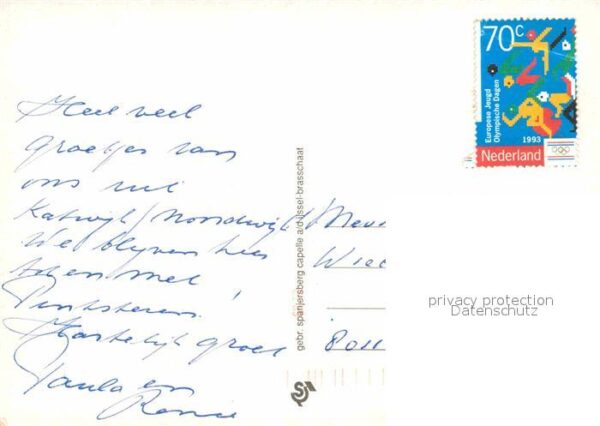 Heel veel
groetjes van
ons uit
Katwijk/Noordwijk!
We blijven hier
met
Pinksteren!
Hartelijk groet
Paula en
gebr. spanjersberg capelle a/d ijssel-brasschaat
70c
Europese Jeugd
Olympische Dagen
1993
Nederland
Mev
Wie
privacy protection
Datenschutz